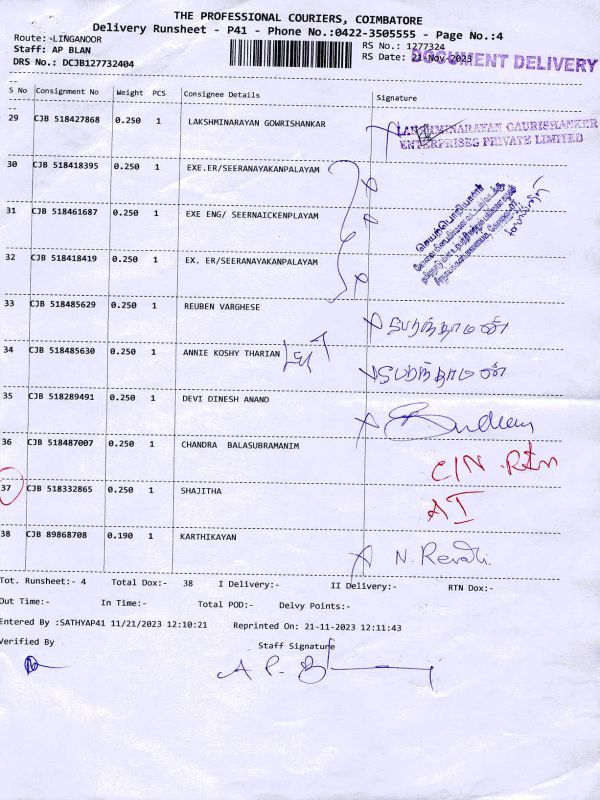 THE PROFESSIONAL COURIERS, COIMBATORE
Delivery Runsheet - P41 - Phone No.:0422-3505555 - Page No.:4
Route:-LINGANOOR
RS No.: 1277324
Staff: AP BLAN
RS Date: 21-Nov-2023
DOCUMENT DELIVERY
DRS No.: DCJB127732404
S No Consignment No Weight PCS Consignee Details Signature
29 CJB 518427868 0.250 1 LAKSHMINARAYAN GOWRISHANKAR
LAKSHMINARAYAN GAURISHANKER
ENTERPRISES PRIVATE LIMITED
30 CJB 518418395 0.250 1 EXE.ER/SEERANAYAKANPALAYAM
31 CJB 518461687 0.250 1 EXE ENG/ SEERNAICKENPLAYAM
செயற்பொறியாளர்
32 CJB 518418419 0.250 1 EX. ER/SEERANAYAKANPALAYAM
33 CJB 518485629 0.250 1 REUBEN VARGHESE
பரந்தாமன்
34 CJB 518485630 0.250 1 ANNIE KOSHY THARIAN
பரந்தாமன்
35 CJB 518289491 0.250 1 DEVI DINESH ANAND
36 CJB 518487007 0.250 1 CHANDRA BALASUBRAMANIM
C/N Rtn
37 CJB 518332865 0.250 1 SHAJITHA
AI
38 CJB 89868708 0.190 1 KARTHIKAYAN
N. Revathi
Tot. Runsheet:- 4 Total Dox:- 38 I Delivery:- II Delivery:- RTN Dox:-
Out Time:- In Time:- Total POD:- Delvy Points:-
Entered By :SATHYAP41 11/21/2023 12:10:21 Reprinted On: 21-11-2023 12:11:43
Verified By Staff Signature
A P. B